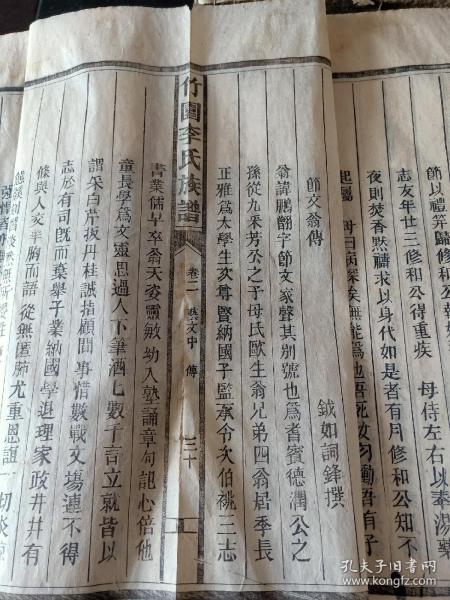 節以禮笄歸修和公
志友年廿三修和公得重疾 母侍左右以奉湯藥
夜則焚香黙禱求以身代如是者有月修和公知不
起屬 母曰病深矣無能為也吾死汝勿慟吾有子
鉞如詞鋒撰
節文翁傳
翁諱鵬翻字節文家聲其別號也爲耆賓德潤公之
孫從九采芳公之子母氏歐生翁兄弟四翁居季長
正雅爲太學生次尊賢納國子監奔令次伯祧三志
竹園李氏族譜
卷二 藝文中 傳
三十
書業儒早卒翁天姿靈敏幼入塾誦章句記心倍他
童長學爲文靈思過人下筆洒七數千言立就皆以
謂采白芹扳丹桂誠指顧間事惜數戰文場連不得
志於有司旣而棄舉子業納國學退理家政井井有
條與人交半胸而語從無匿肺尤重恩誼一切
孔夫子旧书网
book.kongfz.com